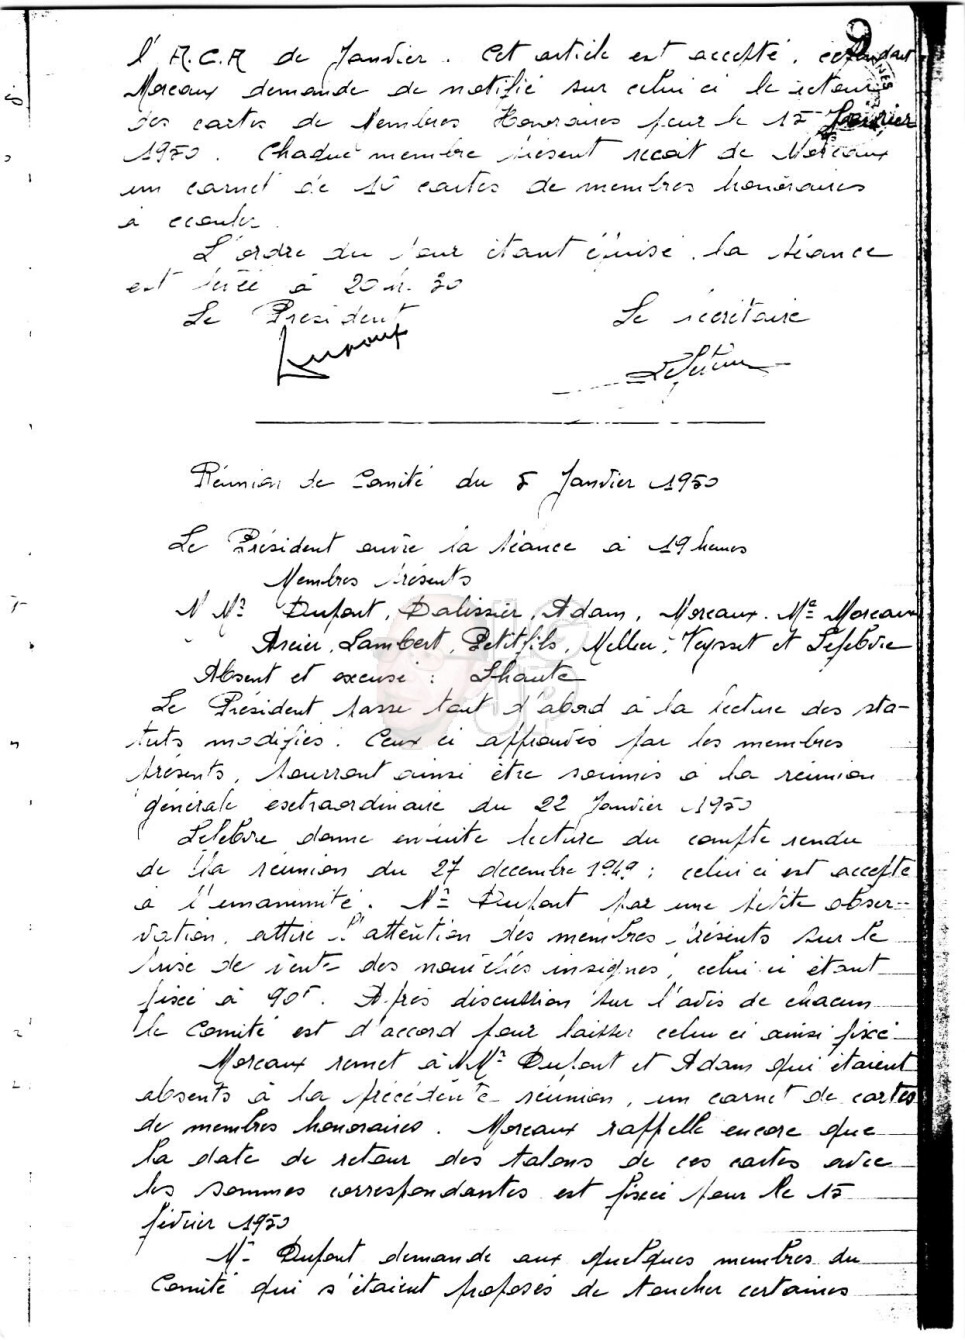 9
l'A.C.A de Janvier. Cet article est accepté, cependant
Moreaux demande de notifié sur celui ci le retour
des cartes de Membres Honoraires pour le 15 Février
1950. Chaque membre présent reçoit de Moreaux
un carnet de 10 cartes de membres honoraires
à écouler.
L'ordre du jour étant épuisé, la séance
est levée à 20 h. 30
Le Président Le secrétaire
Lefebvre
Réunion de Comité du 5 Janvier 1950
Le Président ouvre la séance à 19 heures
Membres présents
M Mrs Dufont, Dalissier, Adam, Moreaux. Me Moreaux
Arcier, Lambert, Petitfils, Mellier, Veysset et Lefebvre
Absent et excusé : Lhaute
Le Président passe tout d'abord à la lecture des sta-
tuts modifiés. Ceux ci approuvés par les membres
présents, pourront ainsi être soumis à la réunion
générale extraordinaire du 22 Janvier 1950
Lefebvre donne ensuite lecture du compte rendu
de la réunion du 27 decembre 1949 ; celui ci est accepté
à l'unanimité. Mr Dufont par une petite obser-
vation, attire l'attention des membres présents sur le
prix de vente des nouvelles insignes, celui ci étant
fixé à 90f. Après discussion sur l'avis de chacun
le Comité est d'accord pour laisser celui ci ainsi fixé
Moreaux remet à MMrs Dufont et Adam qui étaient
absents à la précédente réunion, un carnet de cartes
de membres honoraires. Moreaux rappelle encore que
la date de retour des talons de ces cartes avec
les sommes correspondantes est fixée pour le 15
février 1950
Mr Dufont demande aux quelques membres du
Comité qui s'étaient proposés de toucher certaines